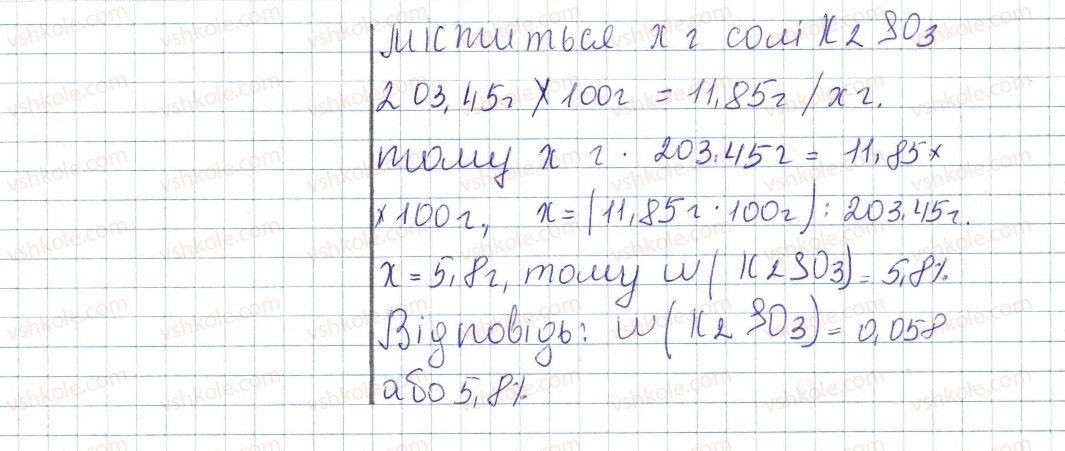 міститься х г солі K2SO3
203,45г / 100г = 11,85г / х г.
тому х г · 203.45г = 11,85 ×
× 100г, х = (11,85г · 100г) : 203.45г.
х = 5,8г, тому w (K2SO3) = 5,8%
Відповідь: w (K2SO3) = 0,058
або 5,8%